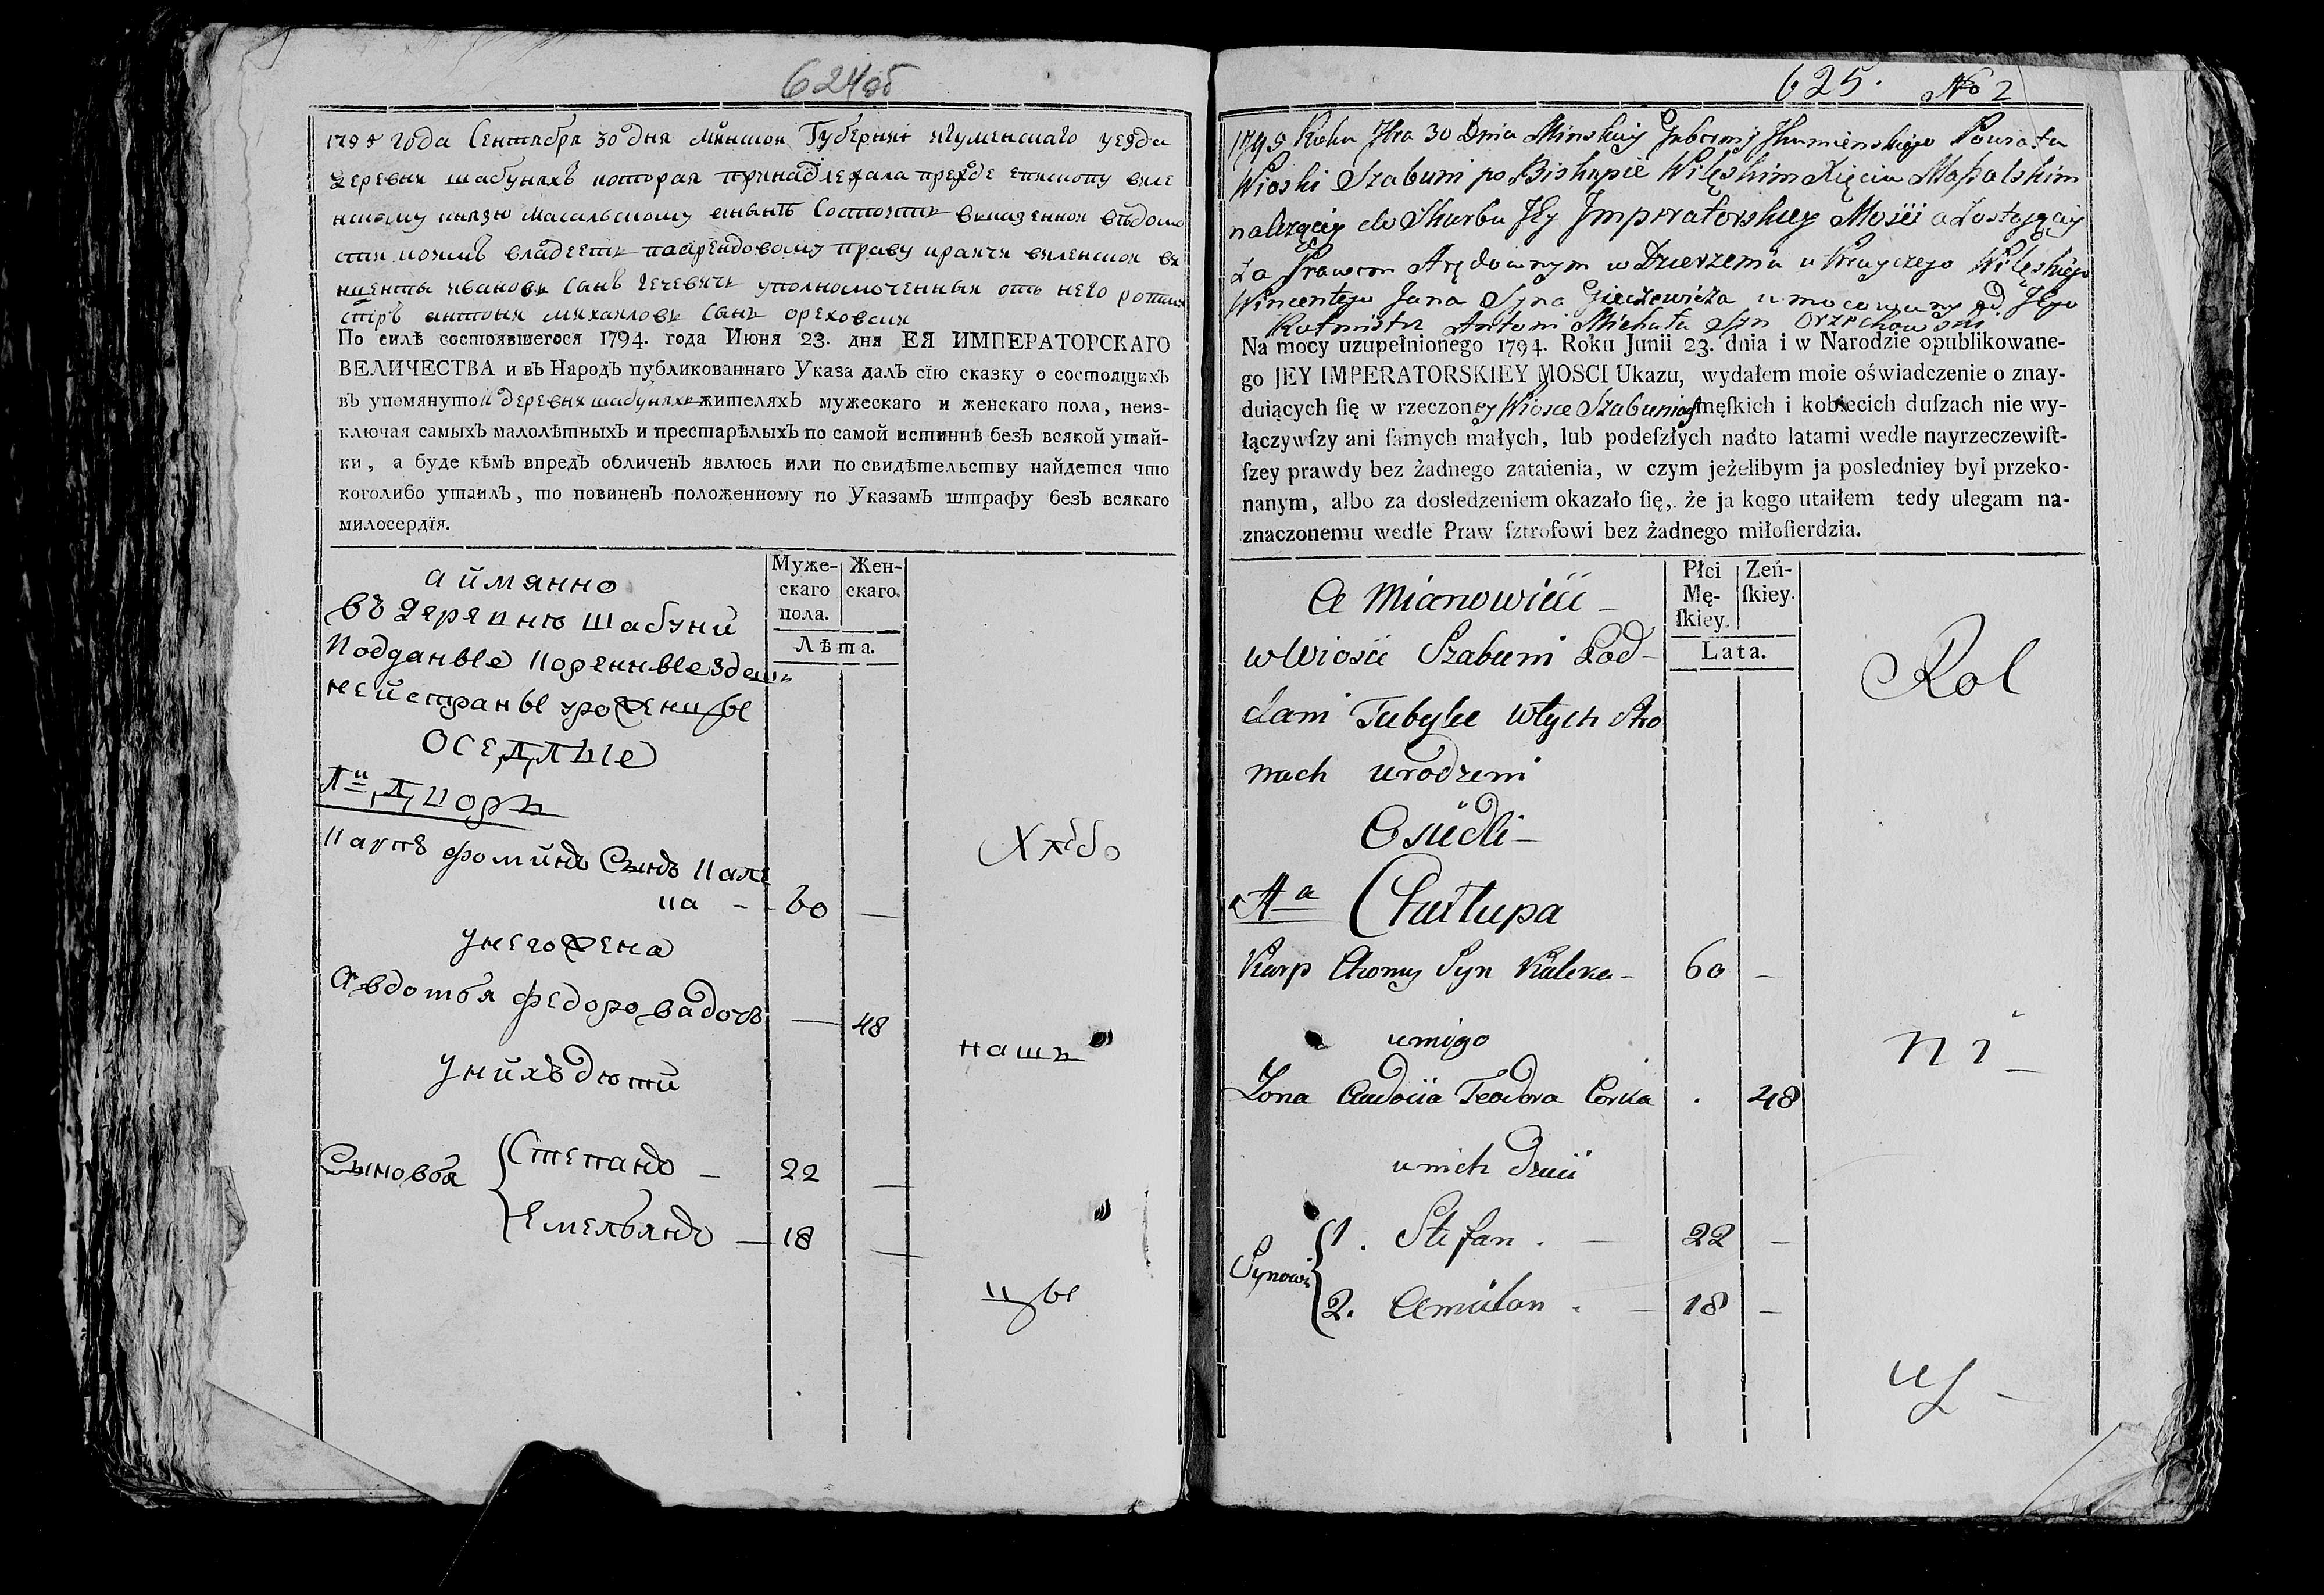 624об
1795 года Сентября 30 дня минской Губернии игуменскаго уезда
деревни шабунях которая принадлежала прежде епископу виле
нскому князю масальскому аныне Состоить вказенной вѣдомо
сти коемъ владеетъ поарендовому праву кравчи виленской ви
нценты ивановъ Санъ гечевичъ уполномоченный отъ него ротми
стръ антони михаиловъ Санъ ореховски
По силѣ состоявшегося 1794. года Июня 23. дня ЕЯ ИМПЕРАТОРСКАГО
ВЕЛИЧЕСТВА и въ Народъ публикованнаго Указа далъ сїю сказку о состоящихъ
въ упомянутой деревни шабуняхъ жителяхъ мужескаго и женскаго пола, неиз-
ключая самыхъ малолѣтныхъ и престарѣлыхъ по самой истиннѣ безъ всякой утай-
ки, а буде кѣмъ впредь обличенъ явлюсь или по свидѣтельству найдется что
коголибо утаилъ, то повиненъ положенному по Указамъ штрафу безъ всякаго
милосердїя.
Муже-
скаго
пола.
Жен-
скаго.
Лѣта.
а иймянно
въ деревню шабуни
подданые коренные зде
ней страны уроженцы
оседлые
1й двор
карпъ фоминъ Сынъ кале
ка - 60 —
у него жена
авдотья федорова дочь — 48
у нихъ дети
Сыновья
Степанъ — 22 —
Емельянъ — 18 —
Хлѣбо
паш
цы
625. No 2
1795 Roku 7bra 30 Dnia Minskiey Gubernij Ihumienskiego Powiatu
Wioski Szabuni po Biskupie Wileskim Xięciu Massalskim
należącey do Skarbu Jey Imperatorskiey Mości a zostającey
za Prawem Arędownym w Dzierzeniu u Krayczego Wileskiego
Wincentego Jana Syna Gieczewicza umocowany od Jego
Rotmistrz Antoni Michała Syn Orzechowski
Na mocy uzupełnionego 1794. Roku Junii 23. dnia i w Narodzie opublikowane-
go JEY IMPERATORSKIEY MOSCI Ukazu, wydałem moie oświadczenie o znay-
duiących ſię w rzeczoney Wiosce Szabuniach męſkich i kobiecich duſzach nie wy-
łączywſzy ani ſamych małych, lub podeſzłych nadto latami wedle nayrzeczewiſt-
ſzey prawdy bez żadnego zataienia, w czym jeżelibym ja posledniey był przeko-
nanym, albo za dosledzeniem okazało ſię, że ja kogo utaiłem tedy ulegam na-
znaczonemu wedle Praw ſztrofowi bez żadnego miłoſierdzia.
Płci
Mę-
ſkiey.
Zeń-
ſkiey.
Lata.
A Mianowicie -
w Wiosce Szabuni Pod-
dani Tubylce w tych Stro
nach urodzeni
Osiedli -
1a Chałupa
Karp Chomy Syn Kaleka - 60 -
u niego
Zona Audocia Teodora Corka . 48
u nich Dzieci
Synowie
1. Stefan . - 22 -
2. Amilan . - 18 -
Rol
ni -
cy -